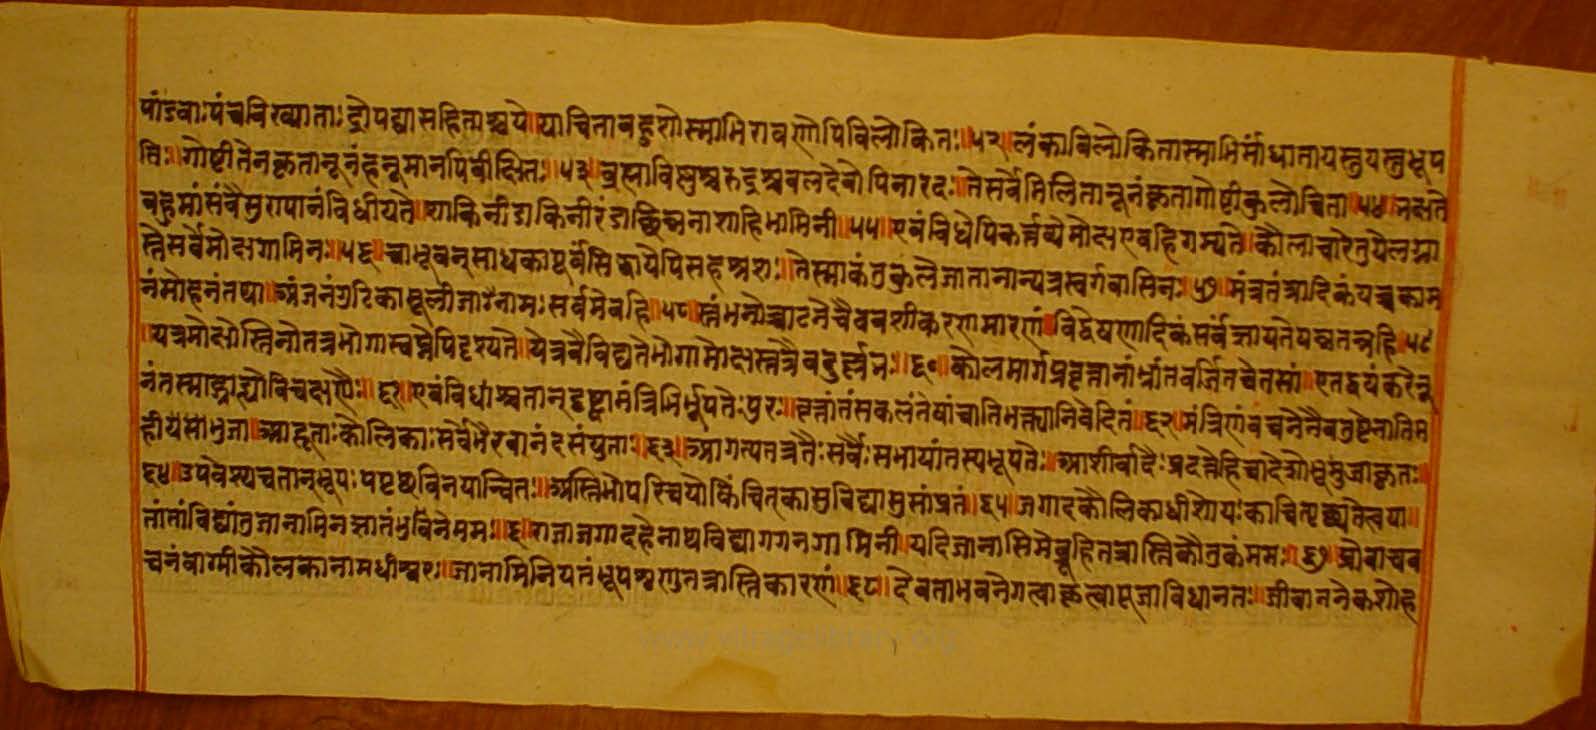 पांडवाःपंचविख्याताःद्रौपद्यासहिताश्चये॥याचिताबहुशोस्माभिरावणोपिविलोकितः॥५२॥लंकाविलोकितास्माभिर्मांधातायस्तुयस्तुभूप
तिः॥गोष्टीतेनकृतानूनंहनूमानपिवीक्षितः॥५३॥ब्रह्माविष्णुश्चरुद्रश्चबलदेवोपिनारदः॥तेसर्वेमिलितानूनंकृतागोष्टीकुलोचिता॥५४॥भक्षते
बहुमांसंवैसुरापानंविधीयते॥शाकिनीडाकिनीरंडाछिन्ननाशाहिभामिनी॥५५॥एवंविधेपिकर्त्तव्येमोक्षएवहिगम्यते॥कौलाचारेतुयेलग्ना
स्तेसर्वेमोक्षगामिनः॥५६॥चाभूवन्साधकापूर्वंसिद्धायेपिसहस्रशः॥तेस्माकंतुकुलेजातानान्यत्रस्वर्गवासिनः॥५७॥मंत्रतंत्रादिकंयच्चकाम
नंमोहनंतथा॥अंजनंगुटिकाधूलीजानामःसर्वमेवहि॥५८॥स्तंभनोच्चाटनेचैववशीकरणमारणं॥विद्वेषणादिकंसर्वंज्ञायतेयच्चतन्नहि॥५९
॥यत्रमोक्षोस्तिनोतत्रभोगास्वप्नेपिदृश्यते॥येत्रवैविद्यतेभोगामोक्षस्तत्रैवदुर्ल्लभः॥६०॥कौलमार्गप्रवृत्तानांभ्रांतवर्जितचेतसां॥एतद्वयंकरेनू
नंतस्माद्ग्राह्योविचक्षणैः॥६१॥एवंविधांश्चतान्दृष्ट्वामंत्रिभिर्भूपतेःपुरः॥वृत्तांतंसकलंतेषांचातिभक्त्यानिवेदितं॥६२॥मंत्रिणांवचनेनैवतुष्टेनातिम
हीयसाभुजा॥आहूताःकौलिकाःसर्वेभैरवानंदसंयुताः॥६३॥आगत्यतत्रतैःसर्वैःसभायांतस्यभूपतेः॥आशीर्वादैःप्रदत्तेहिचादेशोभूभुजाकृतः॥
६४॥उपवेश्यचतान्भूपःपप्रछविनयान्वितः॥अस्तिभोपरिचयोकिंचित्कासुविद्यासुसांप्रतं॥६५॥जगादकौलिकाधीशोयःकाचित्पृछ्यतेत्वया॥
तांतांविद्यांतुजानामिनज्ञातंभुविनेमम॥६६॥राजाजगादहेनाथविद्यागगनगामिनी॥यदिजानासिमेब्रूहितत्रास्तिकौतुकंमम॥६७॥प्रोवाचव
चनंवाग्मीकौलकानामधीश्वरः॥जानामिनियतंभूपश्रृणुतत्रास्तिकारणं॥६८॥देवताभवनेगत्वाकृत्वापूजाविधानतः॥जीवाननेकशोह